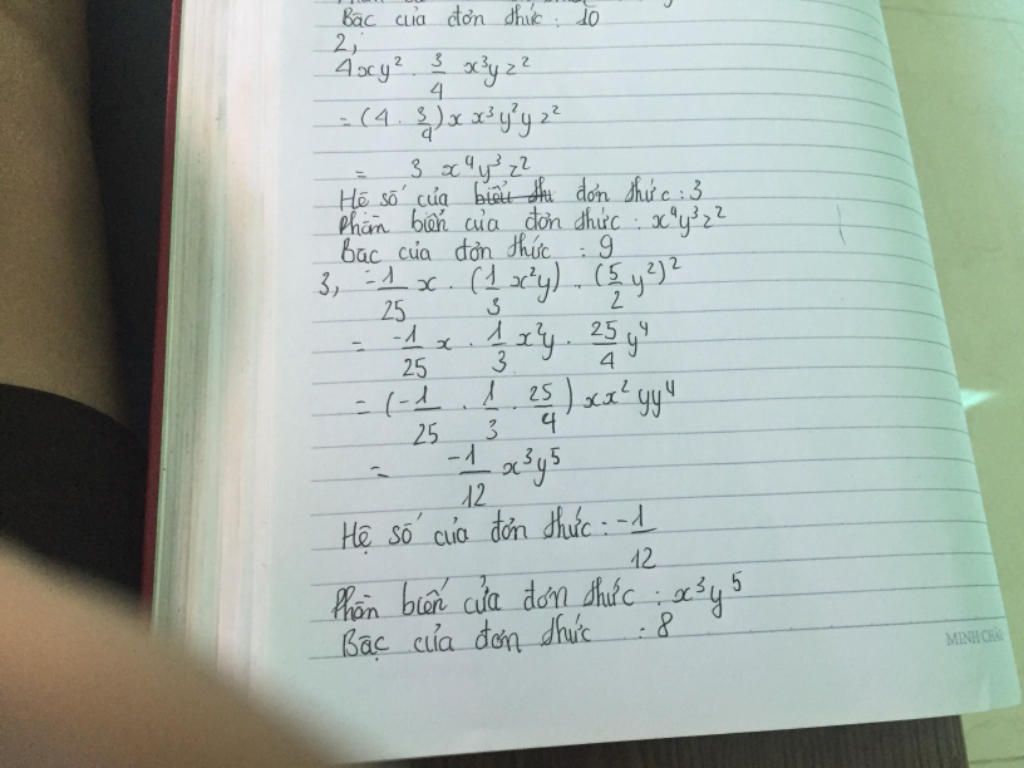 Bậc của đơn thức : 10
2,
4xy² . 3/4 x³yz²
= (4 . 3/4) x x³y²yz²
= 3 x⁴y³z²
Hệ số của biểu thứ đơn thức : 3
Phần biến của đơn thức : x⁴y³z²
Bậc của đơn thức : 9
3, -1/25 x . (1/3 x²y) . (5/2 y²)²
= -1/25 x . 1/3 x²y . 25/4 y⁴
= (-1/25 . 1/3 . 25/4) xx² yy⁴
= -1/12 x³y⁵
Hệ số của đơn thức : -1/12
Phần biến của đơn thức : x³y⁵
Bậc của đơn thức : 8
MINH CHÂU